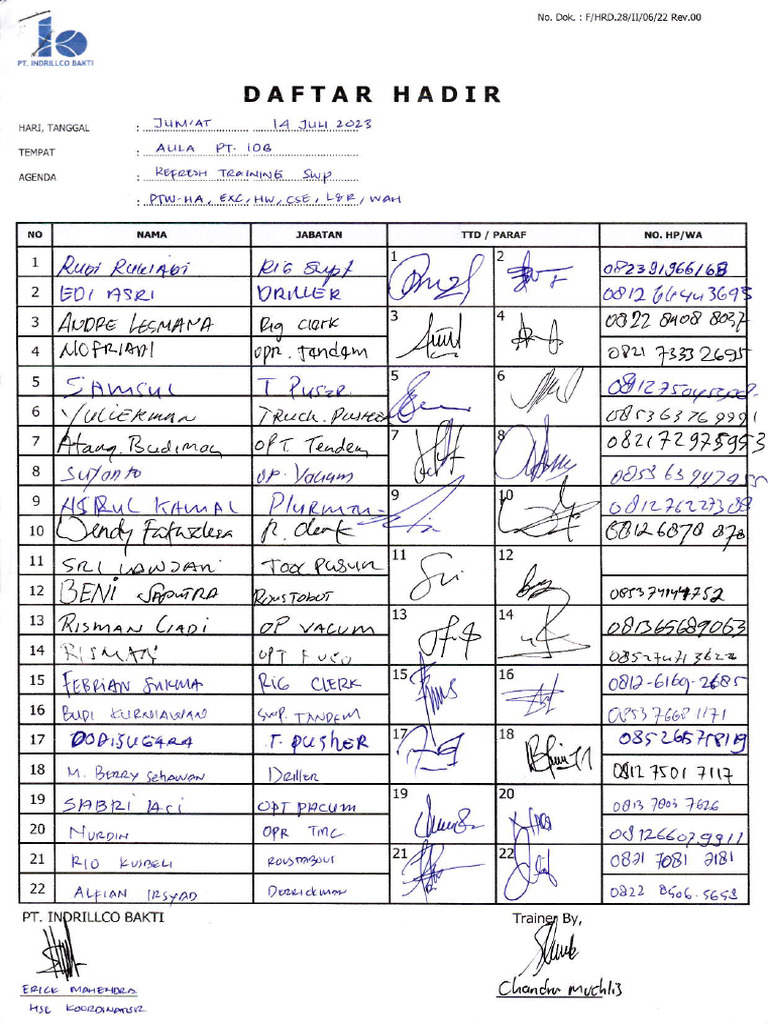 No. Dok. : F/HRD.28/II/06/22 Rev.00
PT. INDRILLCO BAKTI
DAFTAR HADIR
HARI, TANGGAL : JUM'AT 14 JULI 2023
TEMPAT : AULA PT. IDB
AGENDA : REFRESH TRAINING SWP
: PTW-HA, EXC, HW, CSE, L&R, WAH
NO NAMA JABATAN TTD / PARAF NO. HP/WA
1 RUDI RUSIADI RIG Supt 1 2 082391966168
2 EDI ASRI DRILLER
3 ANDRE LESMANA Rig Clerk 3 4 0822 8408 8037
4 NOFRIADI opr. Tandem 0821 7333 2695
5 SAMSUL T PUSER 5 6
6 YULIERMAN TRUCK. PUSHER 085363769991
7 Atang. Budiman OPT Tendem 7 8 082172975953
8 Suyanto OP. Vacum
9 ASRUL KAMAL 9 10 081276227308
10 Wendy R. clerk 08126870 870
11 SRI 11 12
12 BENI SAPUTRA 085374144752
13 RISMAN LIADI OP VACUM 13 14 081365689063
14 RISMAN OPT 085274713622
15 FEBRIAN SUKMA RIG CLERK 15 16 0812-6169-2685
16 BUDI KURNIAWAN SWP. TANDEM 085376681171
17 DODI SUGARA T. PUSHER 17 18
18 M. BERRY Setiawan Driller 0812 7501 7117
19 SABRI OPT 19 20 0813 7003 7626
20 NURDIN OPR TMC 081266079911
21 RIO KUSBELI ROUSTABOUT 21 22 0821 7081 2181
22 ALFIAN IRSYAD Derrickman 0822 8506-5653
PT. INDRILLCO BAKTI Trainer By,
ERICK MAHENDRA Chandra Muchlis
HSE KOORDINATOR